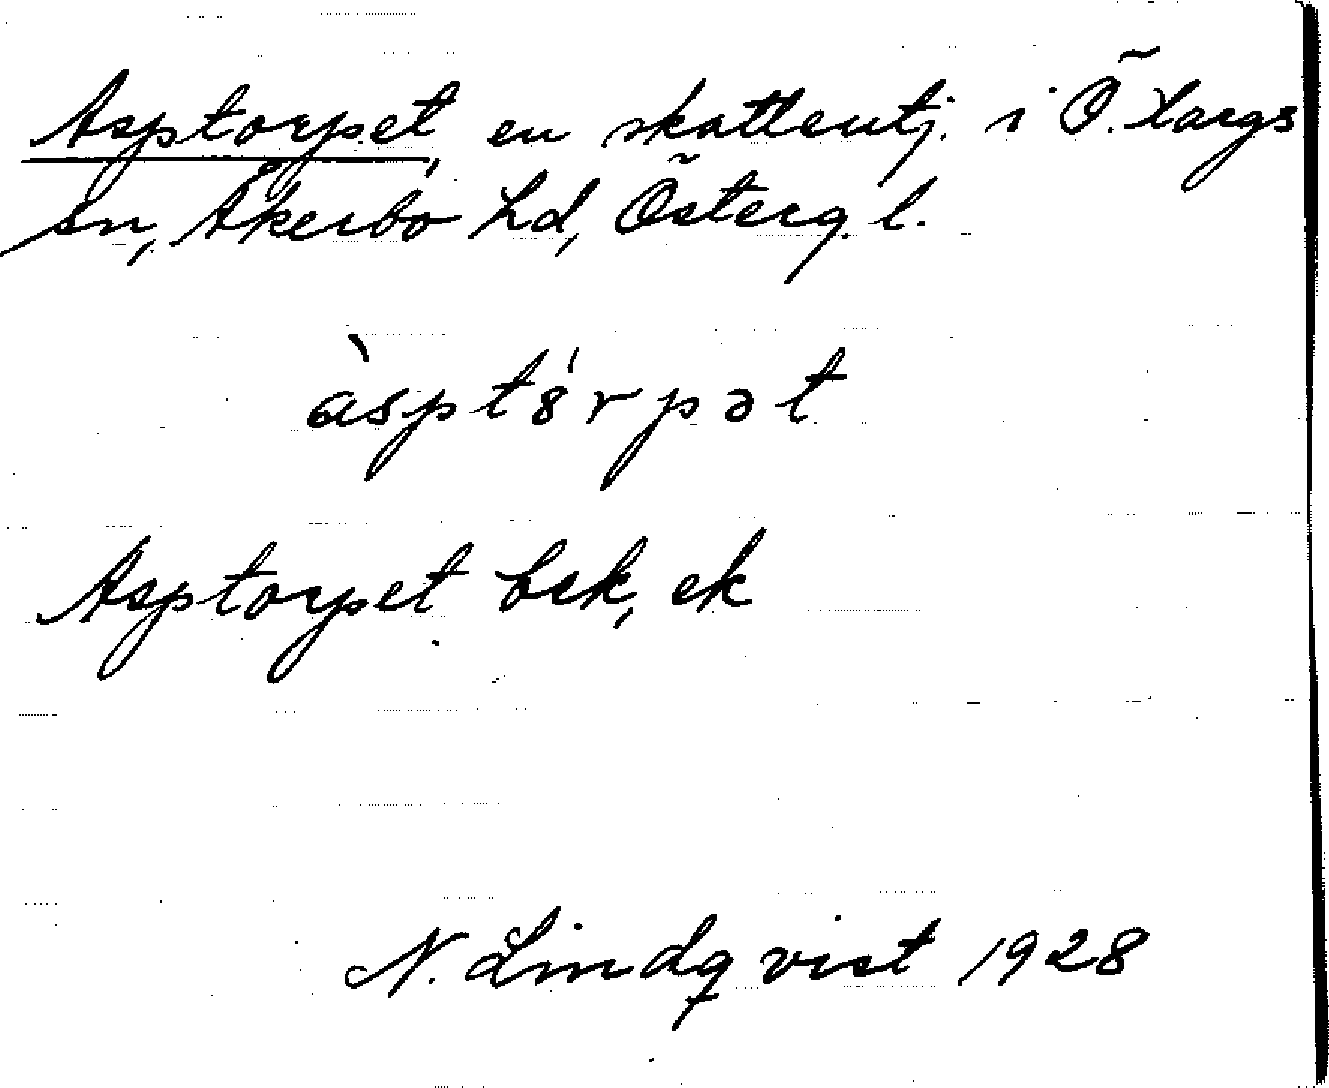 Asptorpet, en skatteutj. i Ö. Hargs
sn, Åkerbo hd, Österg. l.
àsptórpət
Asptorpet bek, ek
N. Lindqvist 1928